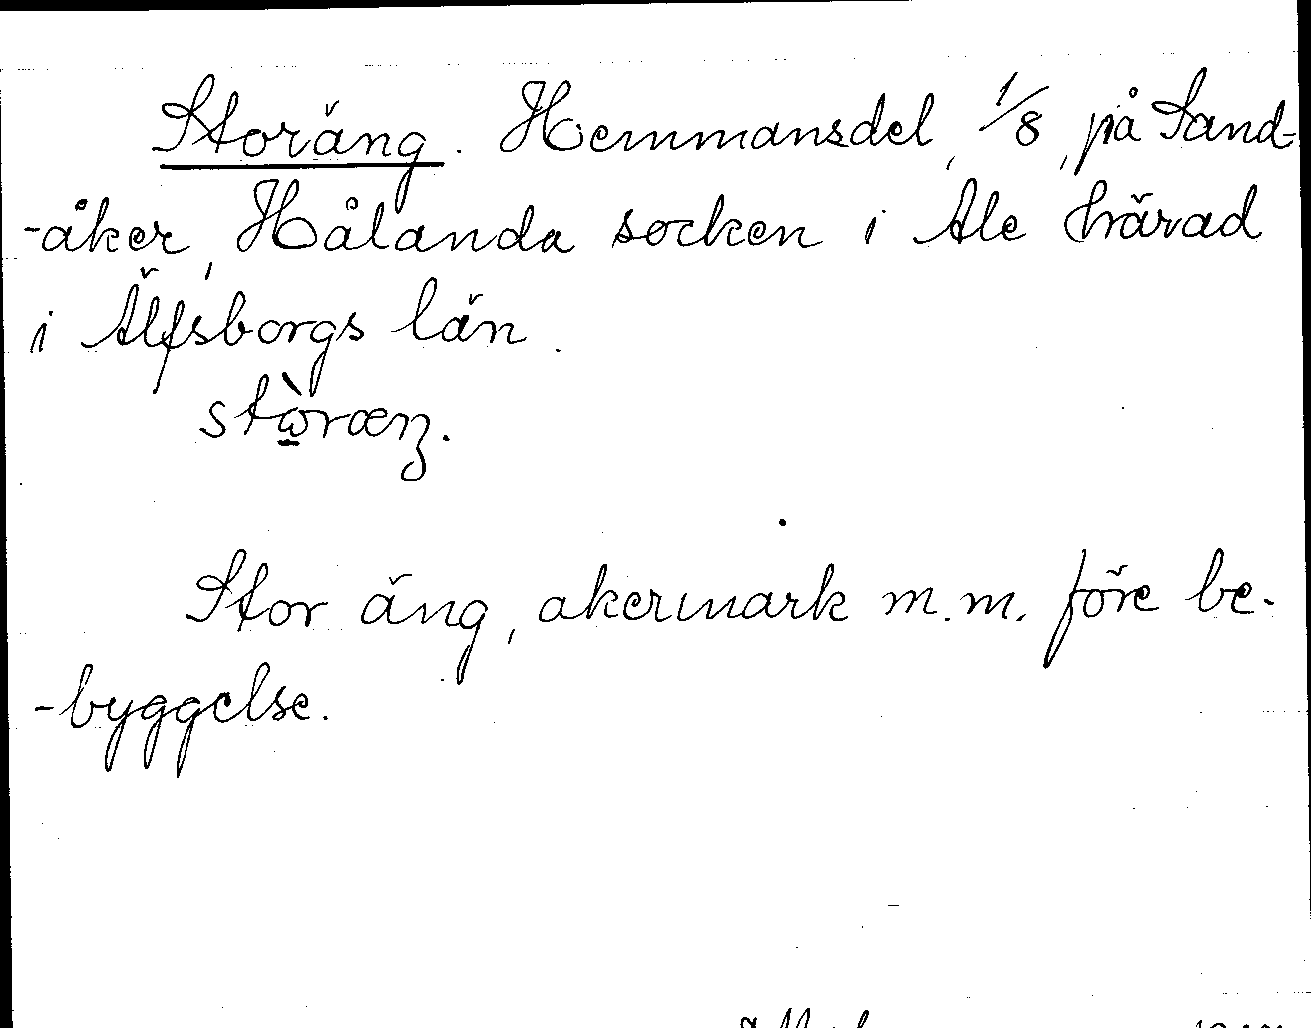 Storäng. Hemmansdel, 1/8, på Sand-
-åker, Hålanda socken i Ale härad
i Älfsborgs län.
stὼræŋ.
Stor äng, akermark m.m. före be-
-byggelse.